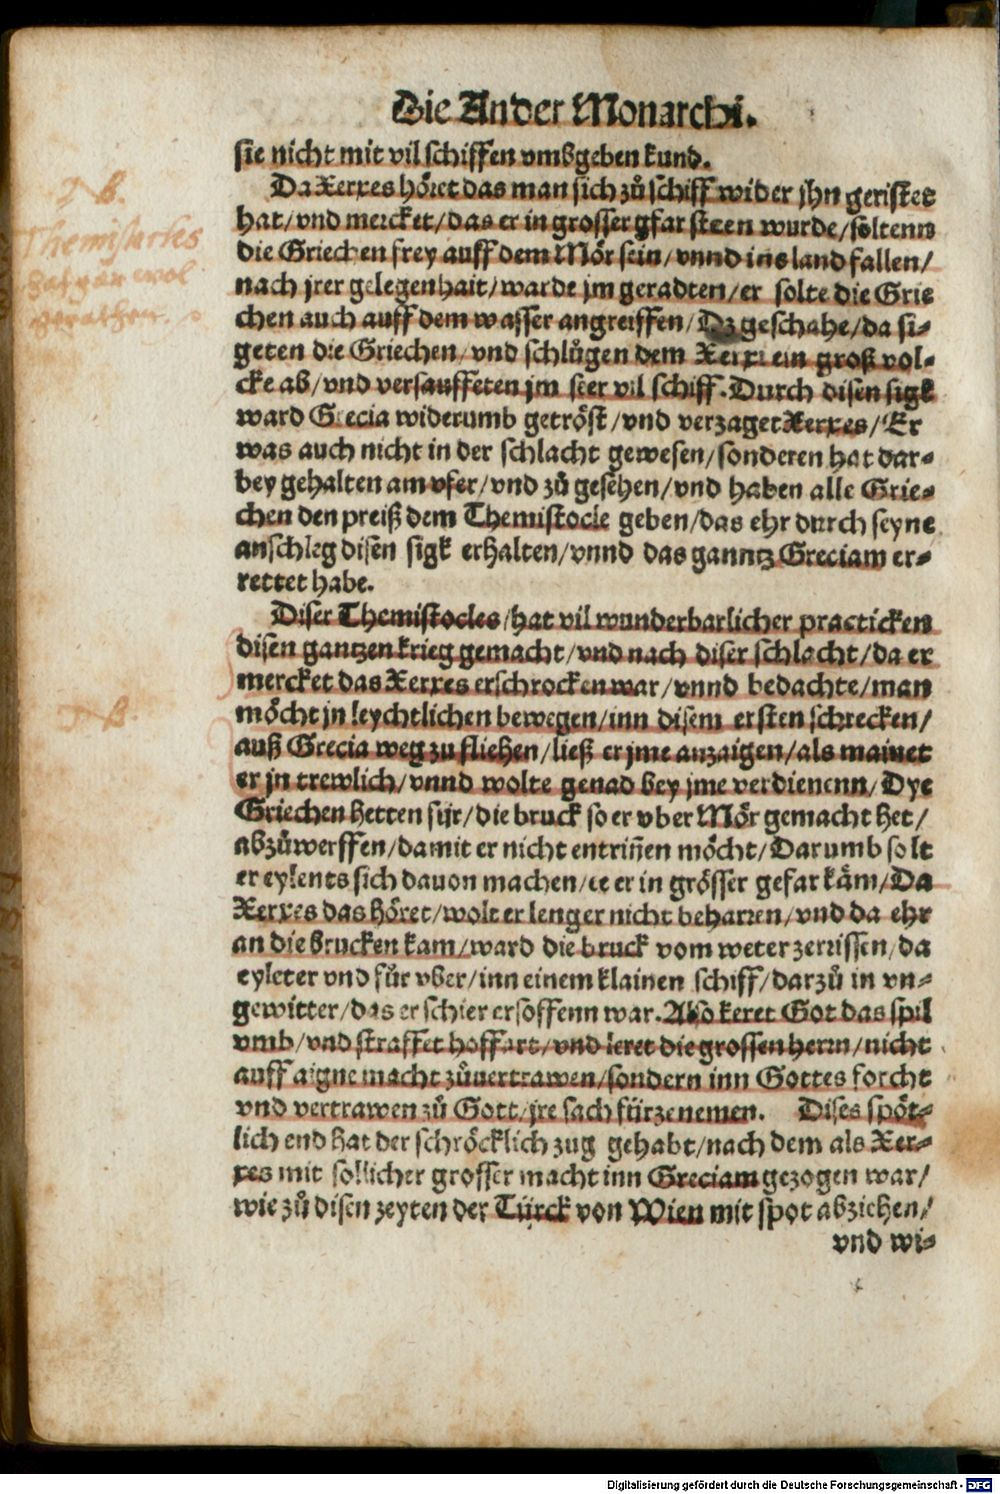 Die Ander Monarchi.
sie nicht mit vil schiffen vmbgeben kund.
Da Xerxes höret das man sich zů schiff wider jhn geristet
hat/vnd mercket/das er in grosser gfar steen wurde/soltenn
die Griechen frey auff dem Mör sein/vnnd ins land fallen/
nach jrer gelegenhait/warde jm geradten/er solte die Grie
chen auch auff dem wasser angreiffen/Dz geschahe/da si-
geten die Griechen/vnd schlůgen dem Xerxi ein groß vol-
cke ab/vnd versauffeten jm seer vil schiff. Durch disen sigk
ward Grecia widerumb getröst/vnd verzaget Xerxes/Er
was auch nicht in der schlacht gewesen/sonderen hat dar-
bey gehalten am vfer/vnd zů gesehen/vnd haben alle Grie-
chen den preiß dem Themistocle geben/das ehr durch seyne
anschleg disen sigk erhalten/vnnd das ganntz Greciam er-
rettet habe.
Diser Themistocles/hat vil wunderbarlicher practicken
disen gantzen krieg gemacht/vnd nach diser schlacht/da er
mercket das Xerxes erschrocken war/vnnd bedachte/man
möcht jn leychtlichen bewegen/inn disem ersten schrecken/
auß Grecia weg zu fliehen/ließ er jme anzaigen/als mainet
er jn trewlich/vnnd wolte genad bey jme verdienenn/Dye
Griechen hetten für/die bruck so er vber Mör gemacht het/
abzůwerffen/damit er nicht entriñen möcht/Darumb solt
er eylents sich dauon machen/ee er in grösser gefar käm/Da
Xerxes das höret/wolt er lenger nicht beharren/vnd da ehr
an die brucken kam/ward die bruck vom weter zerrissen/da
eyleter vnd für vber/inn einem klainen schiff/darzů in vn-
gewitter/das er schier ersoffenn war. Also keret Got das spil
vmb/vnd straffet hoffart/vnd leret die grossen herrn/nicht
auff aigne macht zůuertrawen/sondern inn Gottes forcht
vnd vertrawen zů Gott/jre sach fürzenemen. Dises spöt-
lich end hat der schröcklich zug gehabt/nach dem als Xer-
xes mit sollicher grosser macht inn Greciam gezogen war/
wie zů disen zeyten der Türck von Wien mit spot abziehen/
vnd wi-
NB.
Themistocles
hat gar wol
gerathen.
NB.
Digitalisierung gefördert durch die Deutsche Forschungsgemeinschaft - DFG